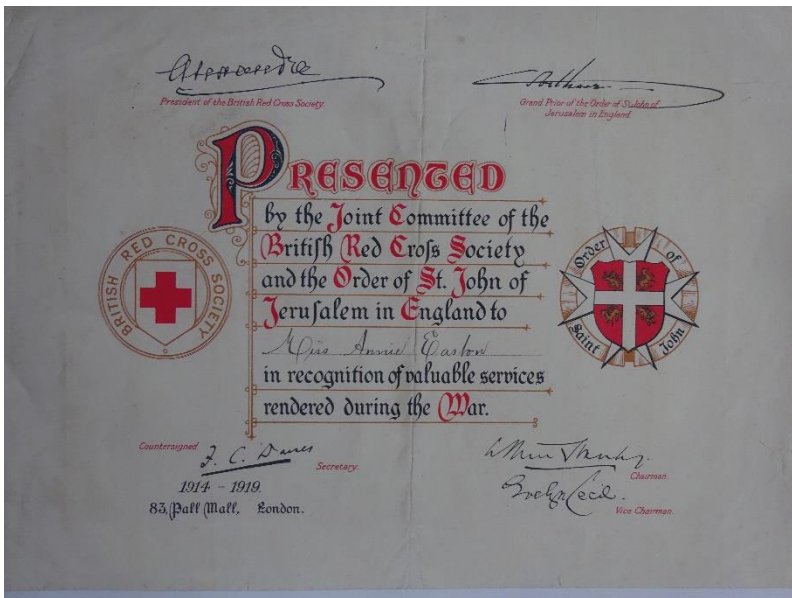 Alexandra
President of the British Red Cross Society.
Arthur
Grand Prior of the Order of St. John of
Jerusalem in England.
PRESENTED
by the Joint Committee of the
Britiſh Red Croſs Society
and the Order of St. John of
Jeruſalem in England to
Miss Annie Easton
in recognition of valuable services
rendered during the War.
BRITISH RED CROSS SOCIETY
Order of Saint John
Countersigned
F. C. Davies
Secretary.
1914 - 1919.
83, Pall Mall, London.
Arthur Stanley.
Chairman.
Evelyn Cecil.
Vice Chairman.